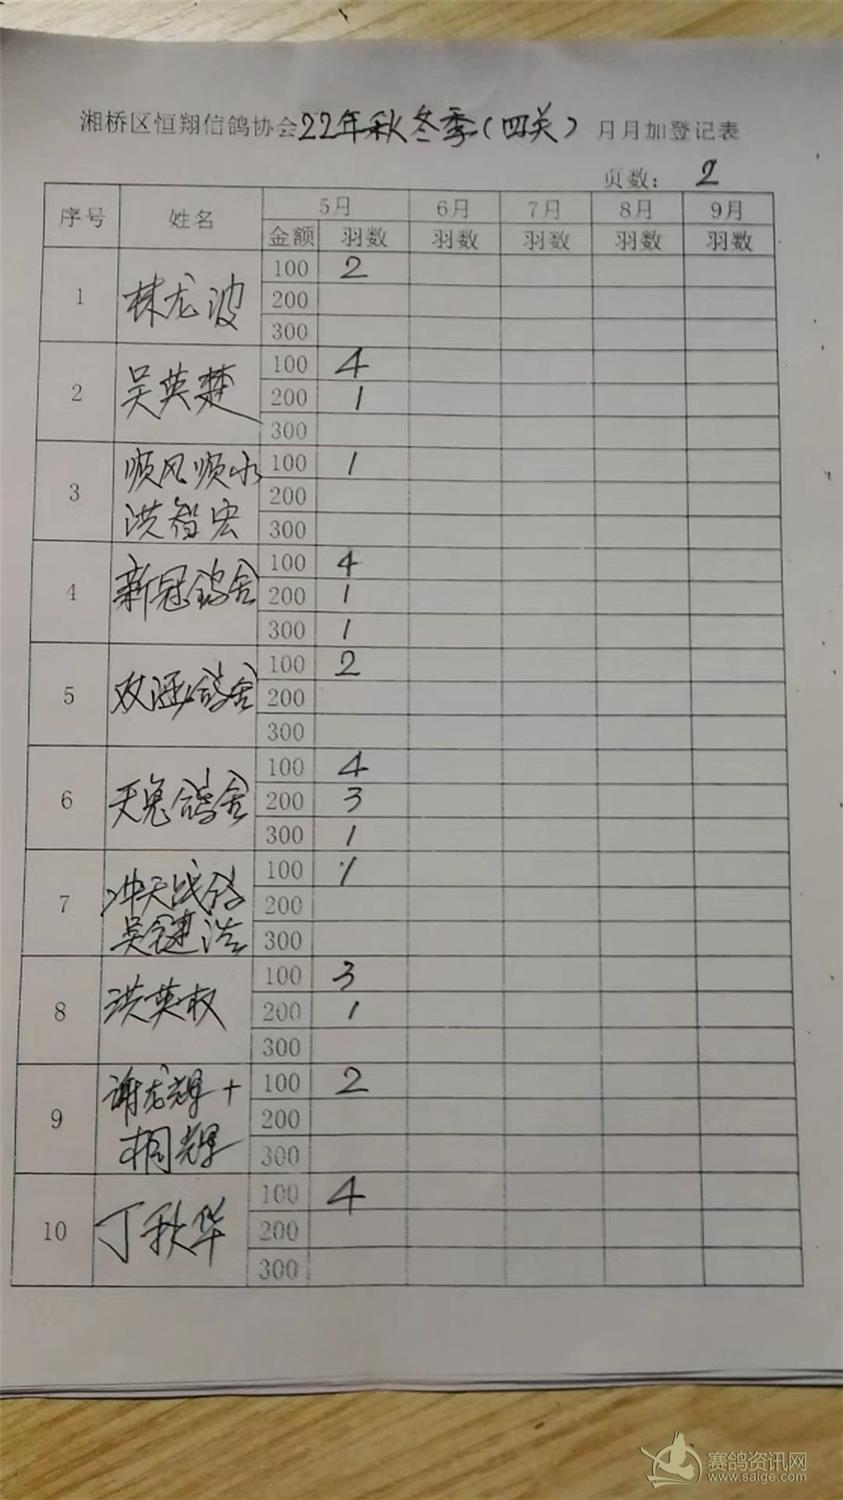 湘桥区恒翔信鸽协会22年秋冬季(四关)月月加登记表
页数: 2
序号 姓名 5月 6月 7月 8月 9月
金额 羽数 羽数 羽数 羽数 羽数
1 林龙波 100 2
200
300
2 吴英楚 100 4
200 1
300
3 顺风顺水 100 1
200
洪智宏 300
4 新冠鸽舍 100 4
200 1
300 1
5 双涵鸽舍 100 2
200
300
6 天兔鸽舍 100 4
200 3
300 1
7 冲天战鸽 100 1
200
吴键浩 300
8 洪英权 100 3
200 1
300
9 谢龙辉+ 100 2
200
桐辉 300
10 丁秋华 100 4
200
300
赛鸽资讯网
www.saige.com